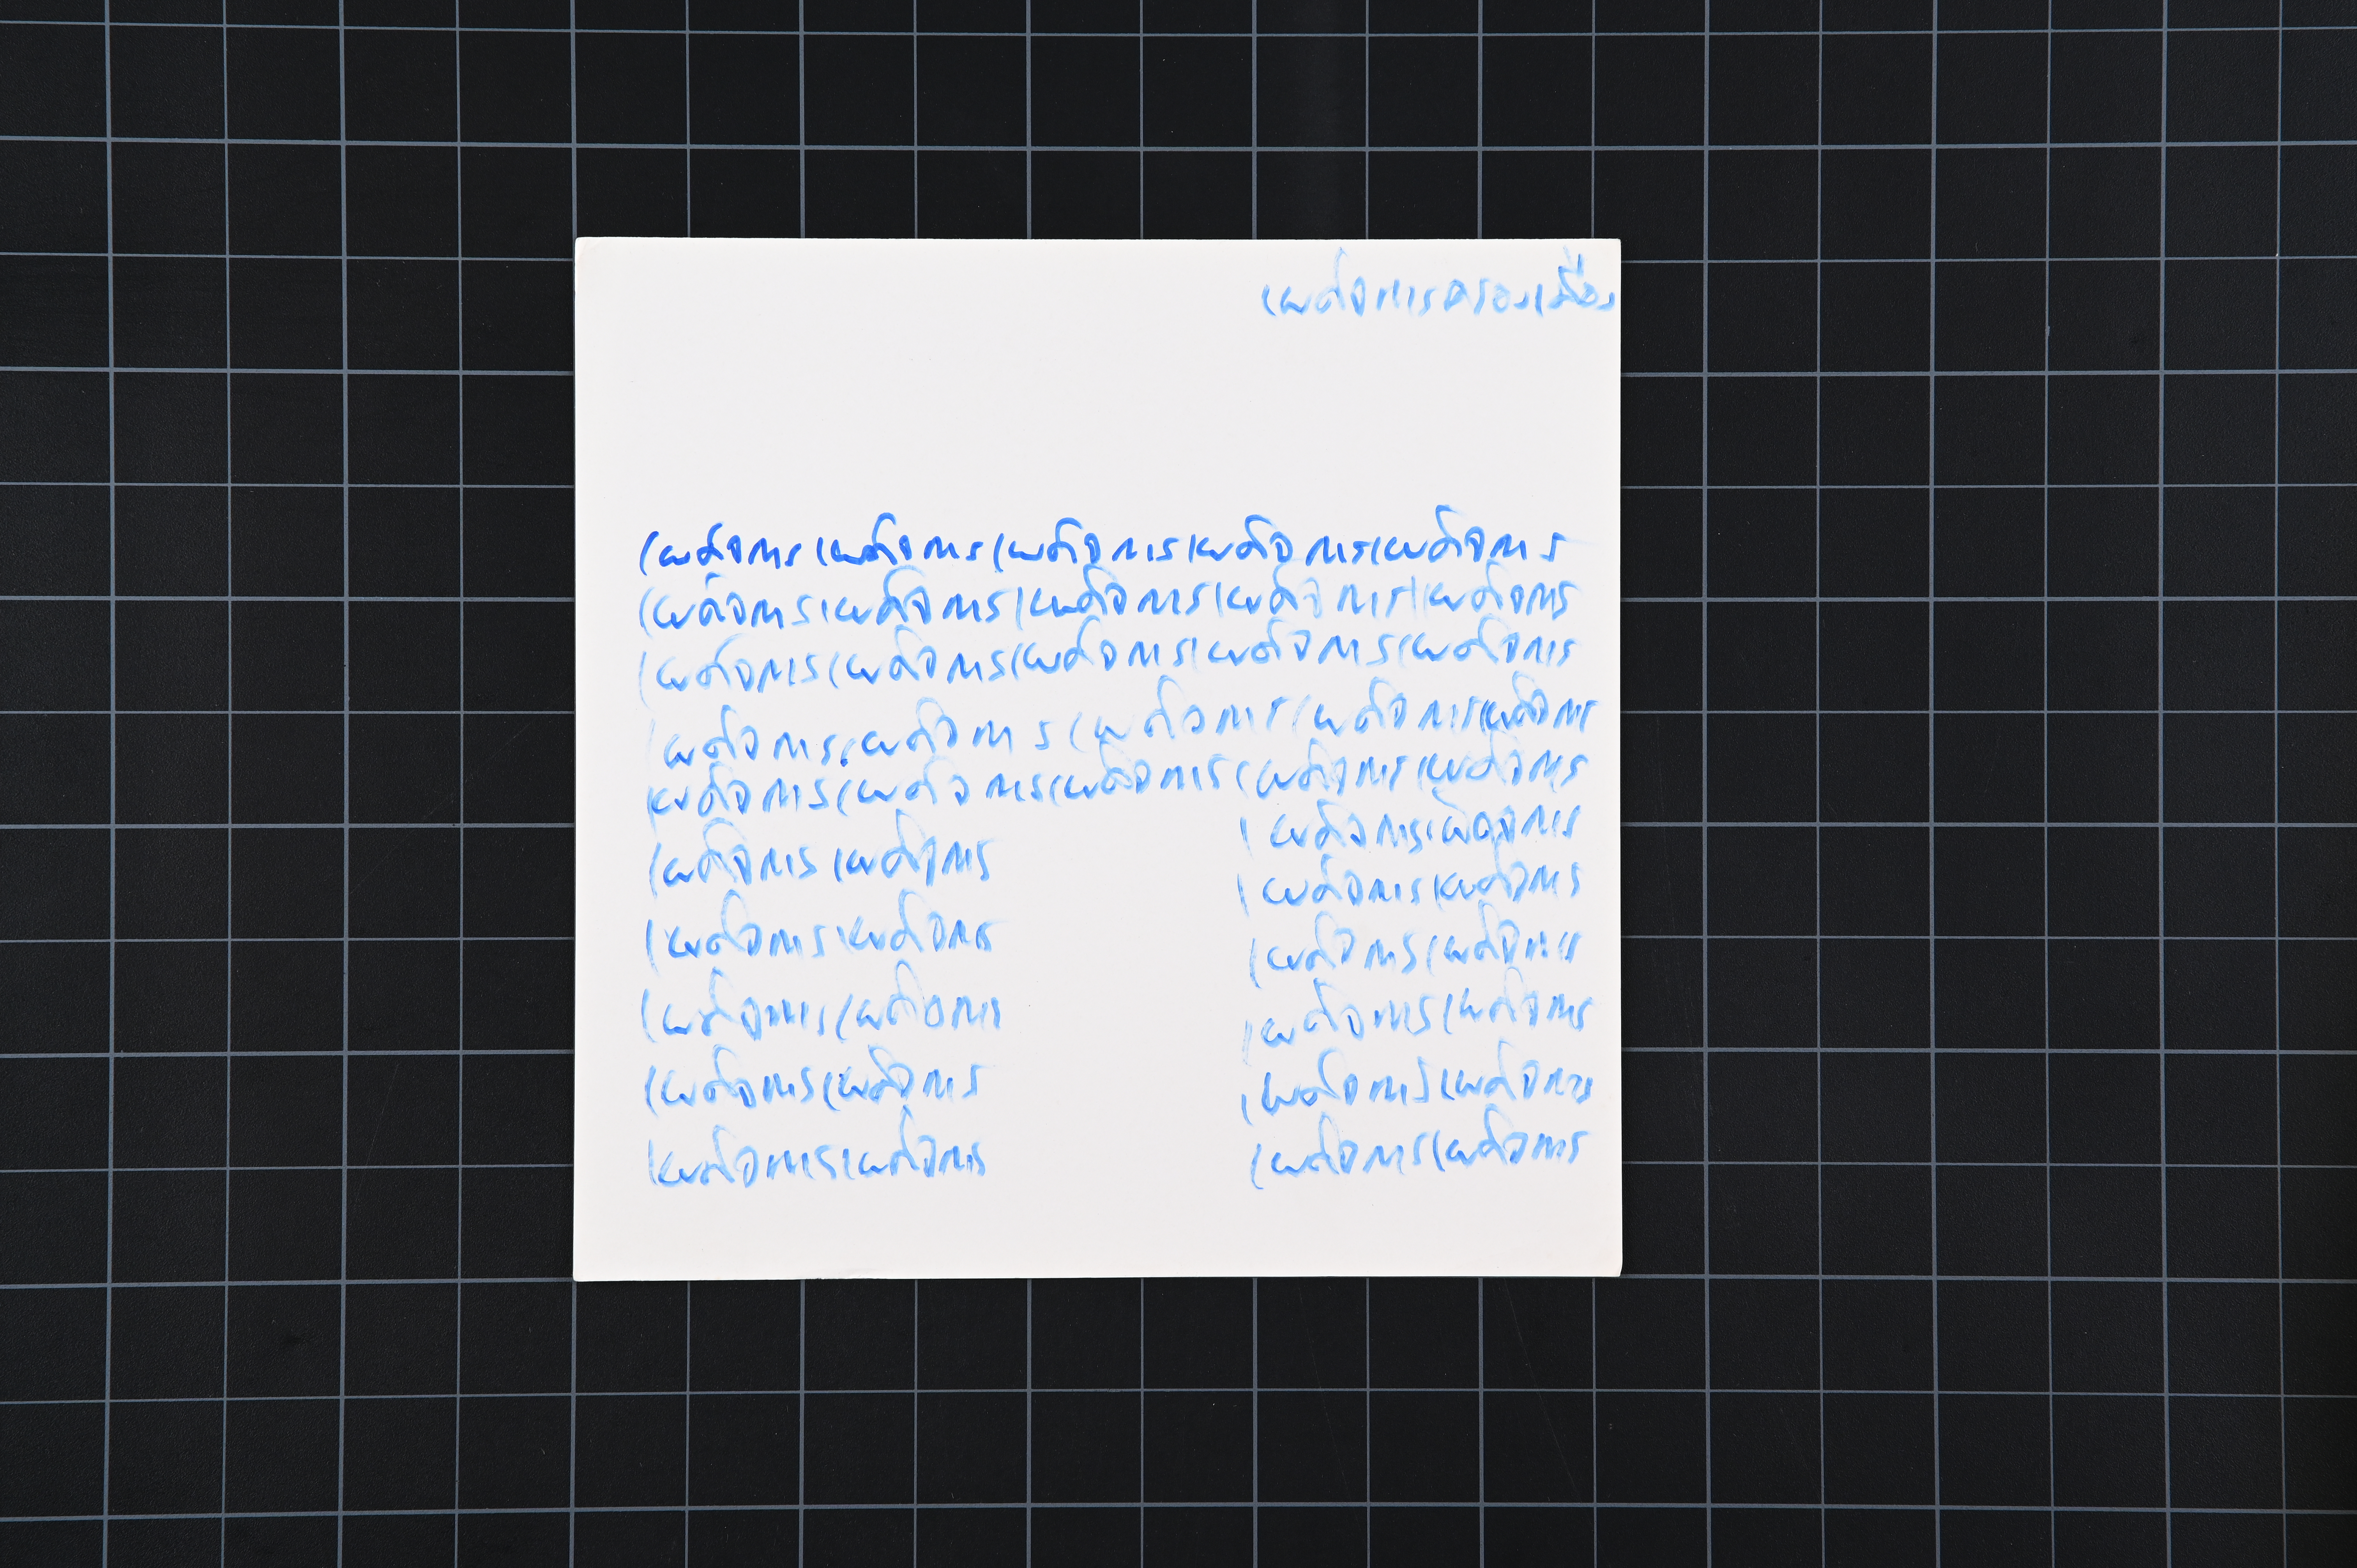 เผด็จการครองเมือง
เผด็จการเผด็จการเผด็จการเผด็จการเผด็จการ
เผด็จการเผด็จการเผด็จการเผด็จการเผด็จการ
เผด็จการเผด็จการเผด็จการเผด็จการเผด็จการ
เผด็จการเผด็จการเผด็จการเผด็จการเผด็จการ
เผด็จการเผด็จการเผด็จการเผด็จการเผด็จการ
เผด็จการเผด็จการ
เผด็จการเผด็จการ
เผด็จการเผด็จการ
เผด็จการเผด็จการ
เผด็จการเผด็จการ
เผด็จการเผด็จการ
เผด็จการเผด็จการ
เผด็จการเผด็จการ
เผด็จการเผด็จการ
เผด็จการเผด็จการ
เผด็จการเผด็จการ